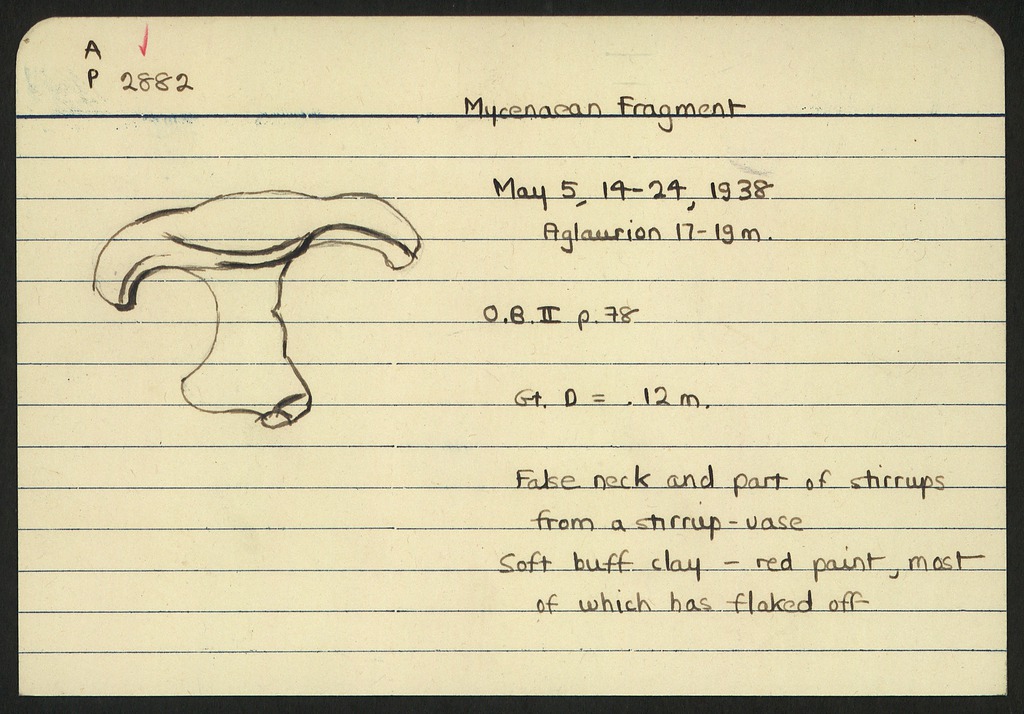 A
P 2882
Mycenaean Fragment
May 5, 14-24, 1938
Aglaurion 17-19 m.
O.B. II p. 78
Gt. D = .12 m.
False neck and part of stirrups
from a stirrup-vase
Soft buff clay - red paint, most
of which has flaked off